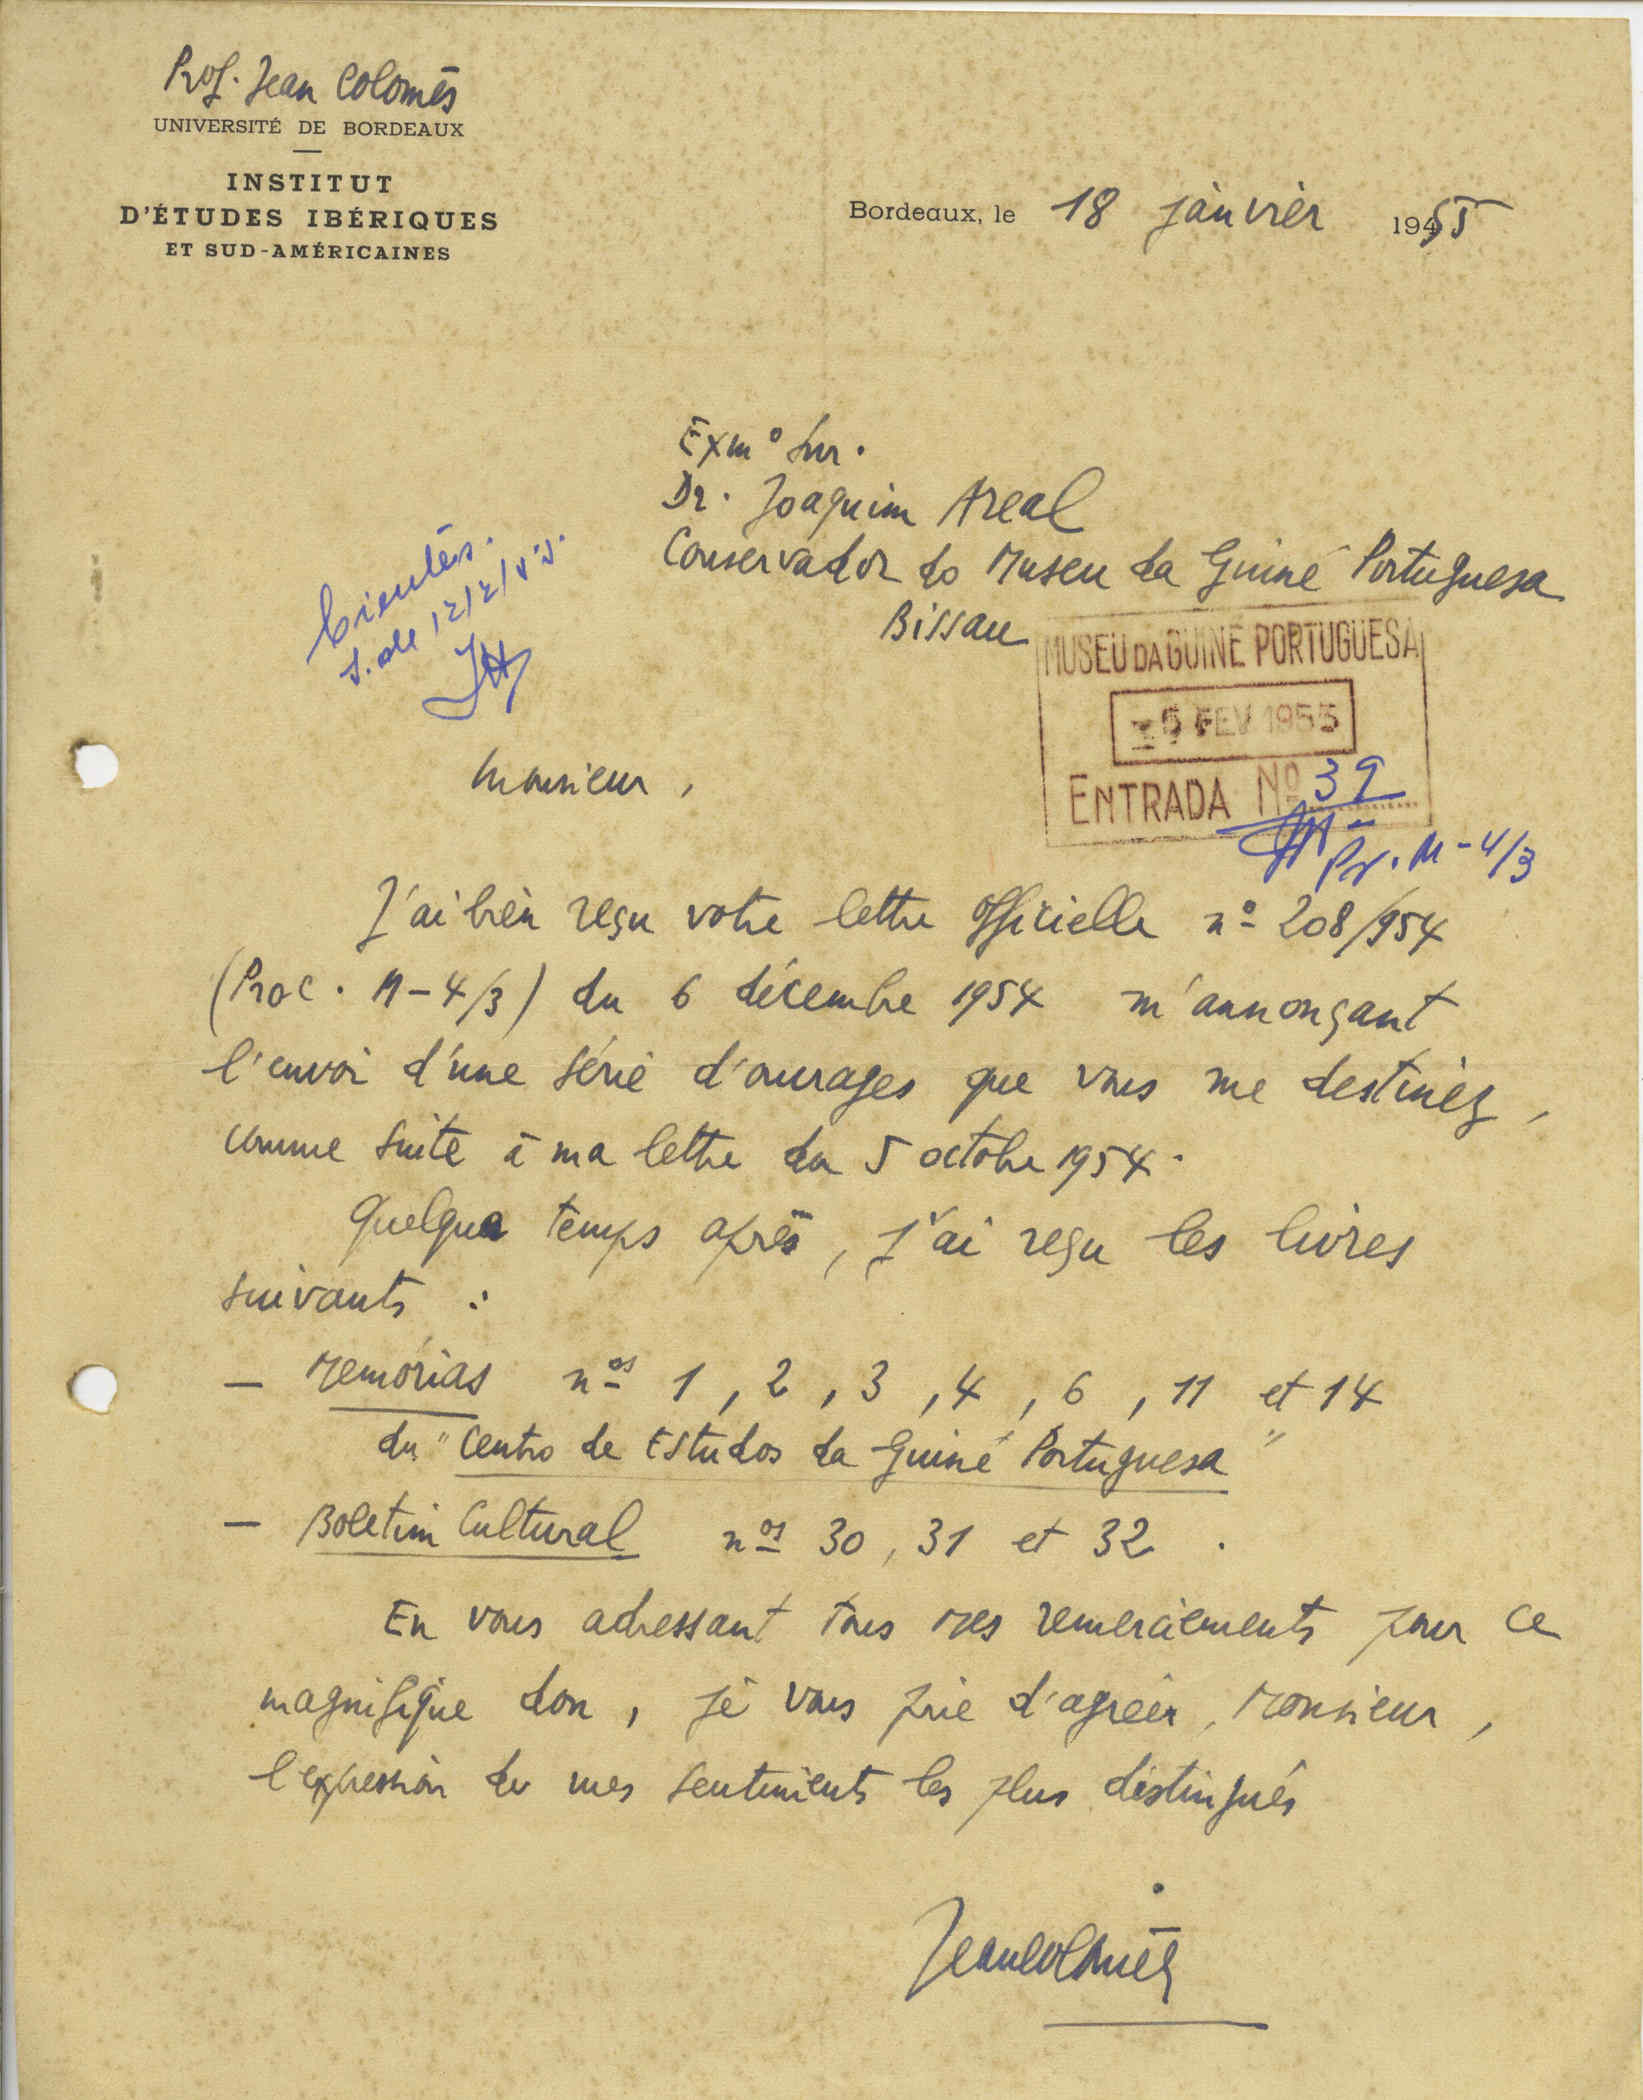 Prof. Jean Colomès
UNIVERSITÉ DE BORDEAUX
INSTITUT
D'ÉTUDES IBÉRIQUES
ET SUD-AMÉRICAINES
Bordeaux, le 18 janvier 1955
Exmº Snr.
Dr. Joaquim Areal
Conservador do Museu da Guiné Portuguesa
Bissau
Cientes.
12/2/55.
MUSEU DA GUINÉ PORTUGUESA
5 FEV 1955
ENTRADA Nº 39
Pr. M-4/3
Monsieur,
J'ai bien reçu votre lettre officielle nº 208/954
(Proc. M-4/3) du 6 décembre 1954 m'annonçant
l'envoi d'une série d'ouvrages que vous me destiniez,
comme suite à ma lettre du 5 octobre 1954.
Quelque temps après, j'ai reçu les livres
suivants :
- Memórias nos 1, 2, 3, 4, 6, 11 et 14
du "Centro de Estudos da Guiné Portuguesa"
- Boletim Cultural nos 30, 31 et 32.
En vous adressant tous mes remerciements pour ce
magnifique don, je vous prie d'agréer, Monsieur,
l'expression de mes sentiments les plus distingués
Jean Colomès